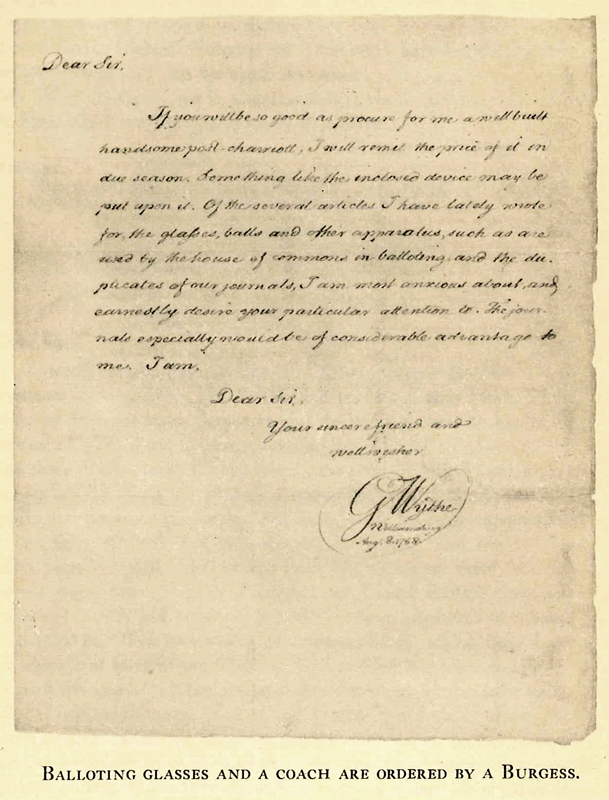 Dear Sir,
If you will be so good as procure for me a well built
handsome post-charriott, I will remit the price of it in
due season. Something like the enclosed device may be
put upon it. Of the several articles I have lately wrote
for, the glasses, balls and other apparatus, such as are
used by the house of commons in balloting, and the du-
plicates of our journals, I am most anxious about, and
earnestly desire your particular attention to. The jour-
nals especially would be of considerable advantage to
me. I am,
Dear Sir,
Your sincere friend and
wellwisher
G Wythe
Williamsburg
Aug. 8. 1768.
BALLOTING GLASSES AND A COACH ARE ORDERED BY A BURGESS.